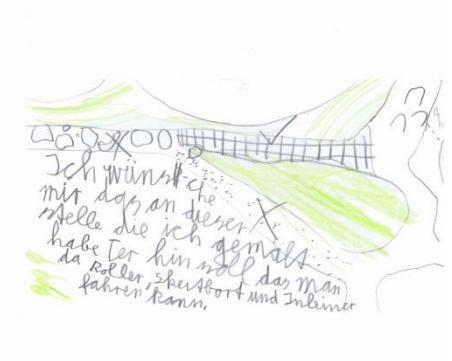 Ich wünsche
mir das an dieser
stelle die ich gemalt
habe Ter hin soll das man
da Roller, skertbort und Inleiner
fahren kann.